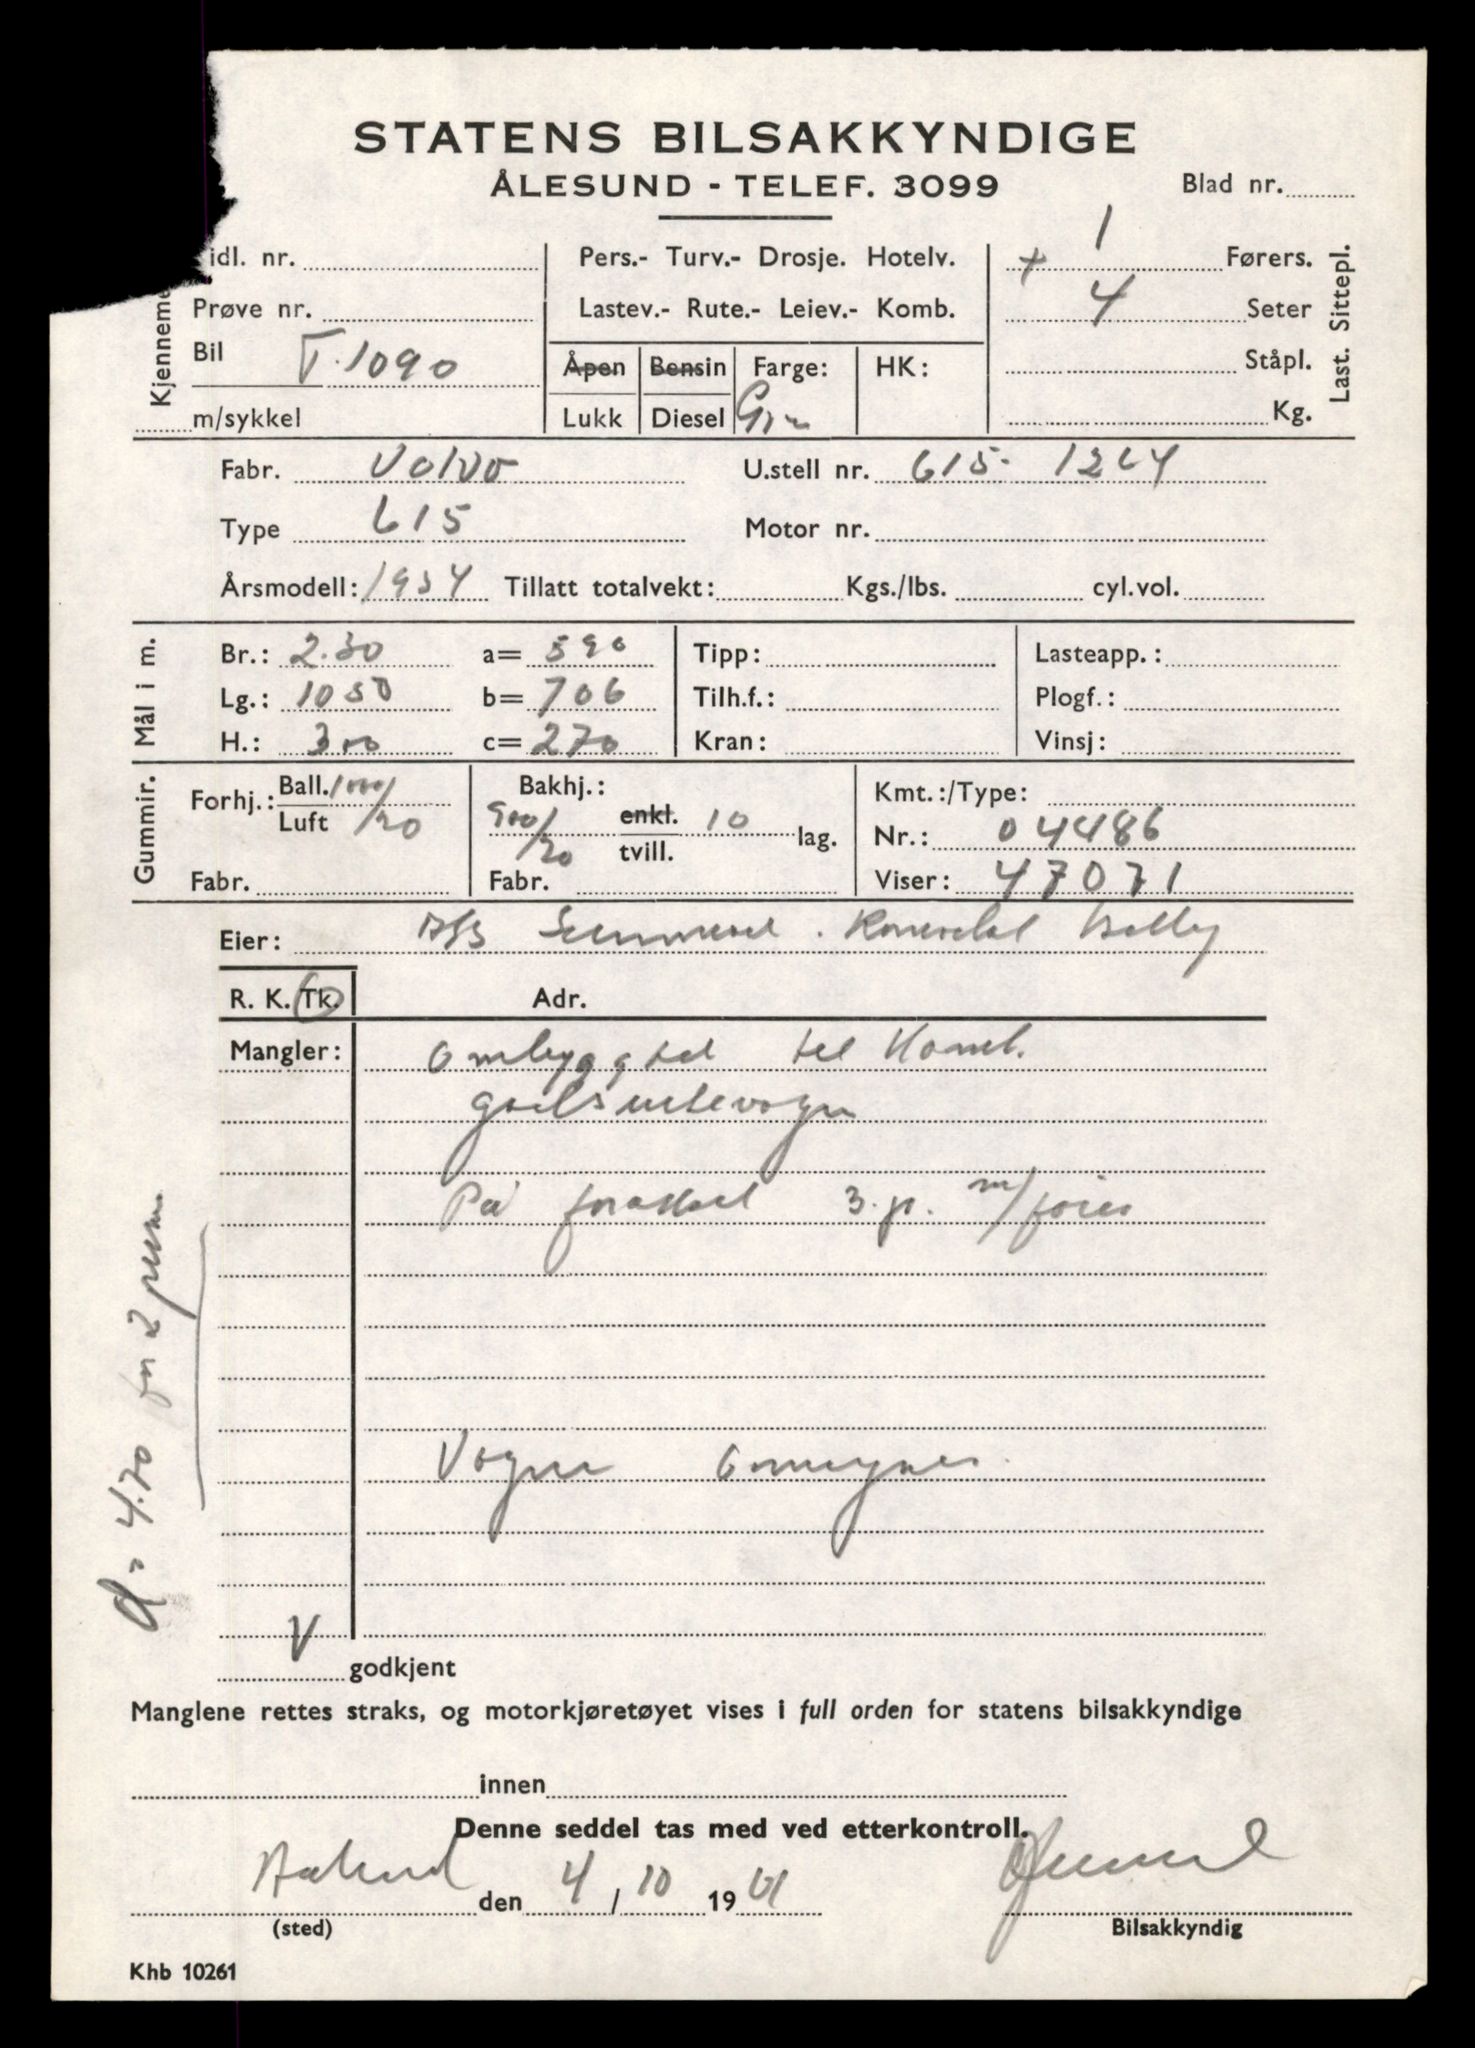 STATENS BILSAKKYNDIGE
ÅLESUND - TELEF. 3099
Blad nr.
Kjenneme
idl. nr.
Prøve nr.
Bil T.1090
m/sykkel
Pers.- Turv.- Drosje. Hotelv.
Lastev.- Rute.- Leiev.- Komb.
Åpen Bensin Farge: HK:
Lukk Diesel
1 Førers.
+ 4 Seter
Ståpl.
Kg.
Last. Sittepl.
Fabr. Volvo U.stell nr. 615- 1264
Type 615 Motor nr.
Årsmodell: 1954 Tillatt totalvekt: Kgs./lbs. cyl.vol.
Mål i m.
Br.: 2.30 a= 590 Tipp: Lasteapp.:
Lg.: 1050 b= 706 Tilh.f.: Plogf.:
H.: 300 c= 270 Kran: Vinsj:
Gummir.
Forhj.: Ball. 1000/20
Luft
Fabr.
Bakhj.:
900/20 enkl. 10 lag.
tvill.
Fabr.
Kmt.:/Type:
Nr.: 04486
Viser: 47071
Eier: A/S Sunnmøre . Romsdal
R. K. Tk. Adr.
Mangler: Ombygget til Komb.
godsrutevogn
På forsetet 3.p. m/fører
Vogna omregnes.
d= 4.70 for 2 pers
V godkjent
Manglene rettes straks, og motorkjøretøyet vises i full orden for statens bilsakkyndige
innen
Denne seddel tas med ved etterkontroll.
Aalesund den 4 / 10 19 61
(sted) Bilsakkyndig
Khb 10261